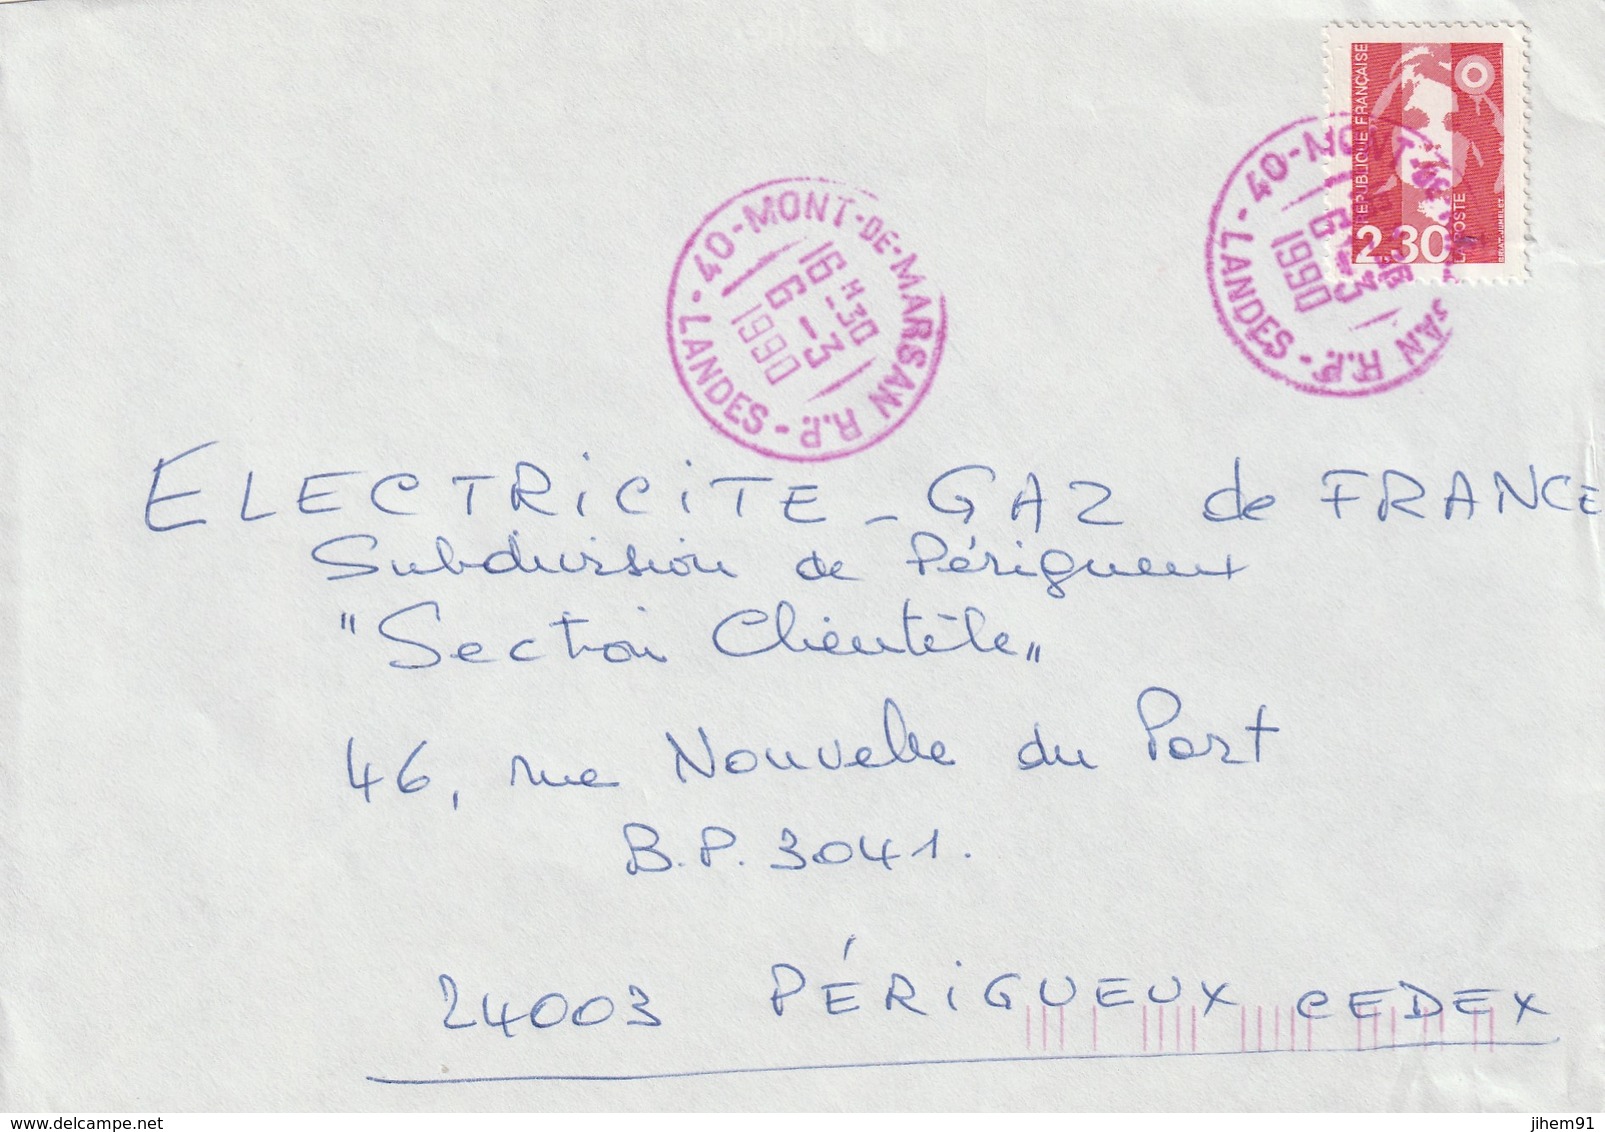 REPUBLIQUE FRANÇAISE
2,30
LA POSTE
BRIAT.JUMELET
40-MONT-DE-MARSAN R.P.-LANDES-
16 H -30
6 -3
1990
40-MONT-DE-MARSAN R.P.-LANDES-
6 -3
1990
ELECTRICITE - GAZ de FRANCE
Subdivision de Périgueux
"Section Clientèle"
46, rue Nouvelle du Port
B.P. 3041.
24003 PÉRIGUEUX CEDEX
www.delcampe.net
jihem91